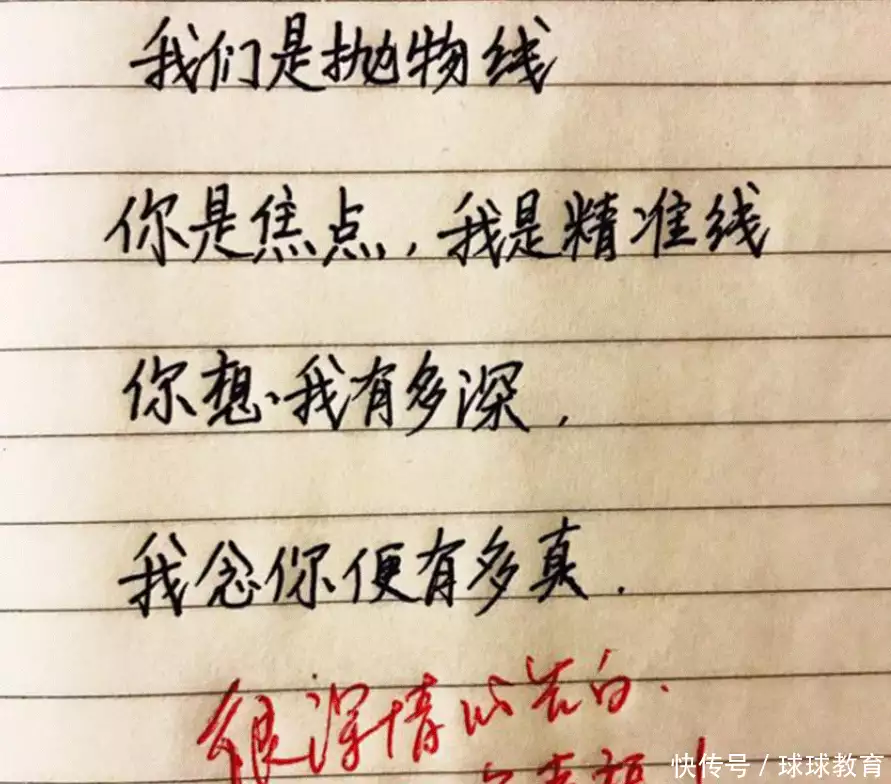 我们是抛物线
你是焦点，我是精准线
你想我有多深，
我念你便有多真．
很深情的告白．
快传号 / 球球教育